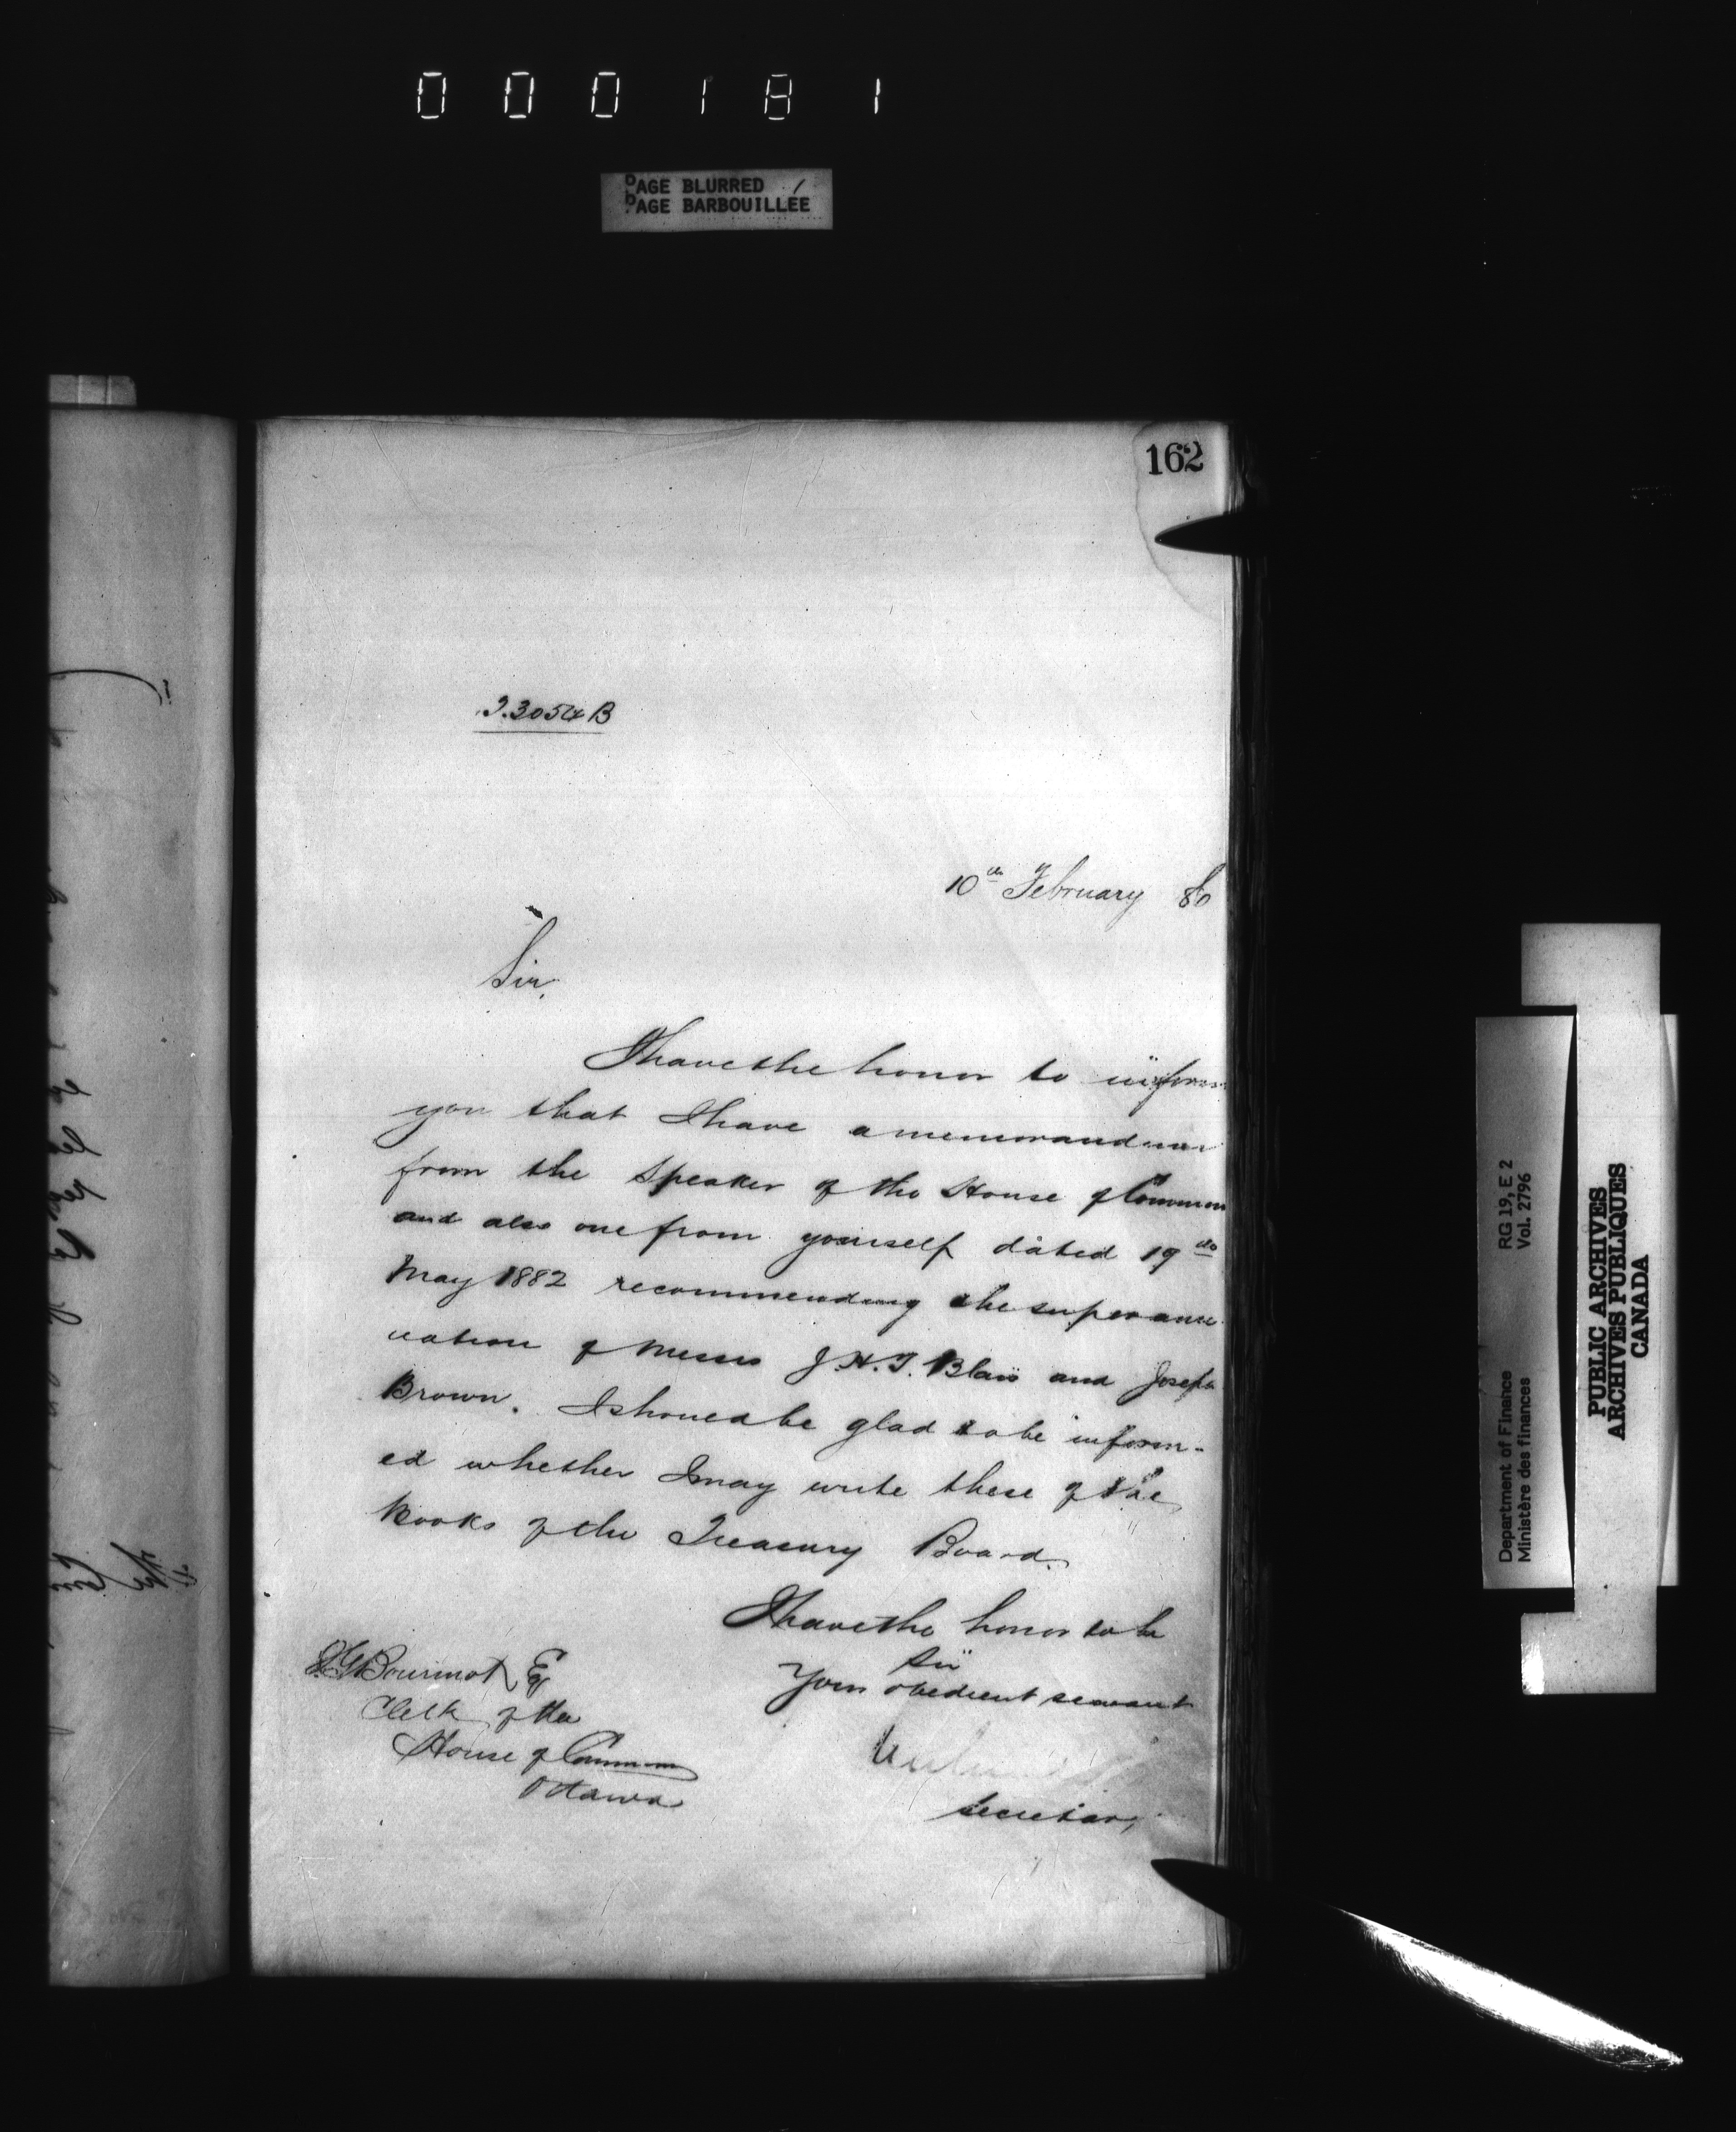 000181
PAGE BLURRED
PAGE BARBOUILLÉE
162
3054 B
10th February
Sir,
I have the honor to inform
you that I have a memorandum
from the Speaker of the House of Commons
and also one from yourself dated 19th
May 1882 recommending the superann
uation of Messrs J.H.T. Blais and Joseph
Brown. I should be glad to be inform-
ed whether I may write these of the
books of the Treasury Board.
I have the honor to be
Sir
Your obedient servant
Secretary
J.G. Bourinot Esq
Clerk of the
House of Commons
Ottawa
Department of Finance
Ministère des finances
RG 19, E 2
Vol. 2796
PUBLIC ARCHIVES
ARCHIVES PUBLIQUES
CANADA